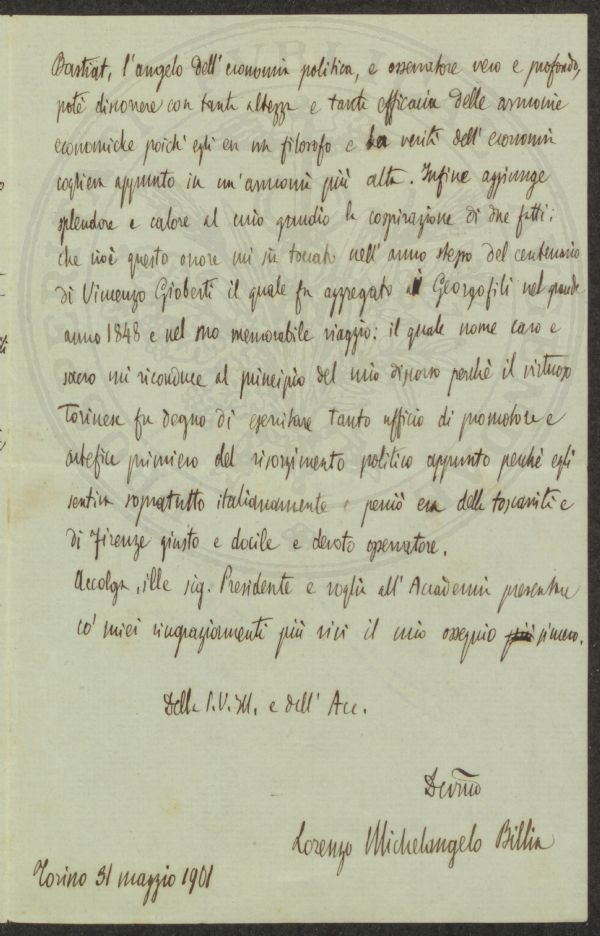 Bastiat, l'angelo dell'economia politica, e osservatore vero e profondo,
potè discorrere con tanta altezza e tanta efficacia delle armonie
economiche poichè egli era un filosofo e la verità dell'economia
coglieva appunto in un'armonia più alta. Infine aggiunge
splendore e calore al mio gaudio la cospirazione di due fatti:
che cioè questo onore mi sia toccato nell'anno stesso del centenario
di Vincenzo Gioberti il quale fu aggregato ai Georgofili nel grande
anno 1848 e nel suo memorabile viaggio: il quale nome caro e
sacro mi riconduce al principio del mio discorso perchè il virtuoso
torinese fu degno di esercitare tanto ufficio di promotore e
artefice primiero del risorgimento politico appunto perchè egli
sentiva sopratutto italianamente e perciò era della toscanità e
di Firenze giusto e docile e devoto osservatore.
Accolga, ille sig. Presidente e voglia all'Accademia presentare
co' miei ringraziamenti più vivi il mio ossequio più sincero.
Della S.V.Ill. e dell'Acc.
Devmo
Lorenzo Michelangelo Billia
Torino 31 maggio 1901